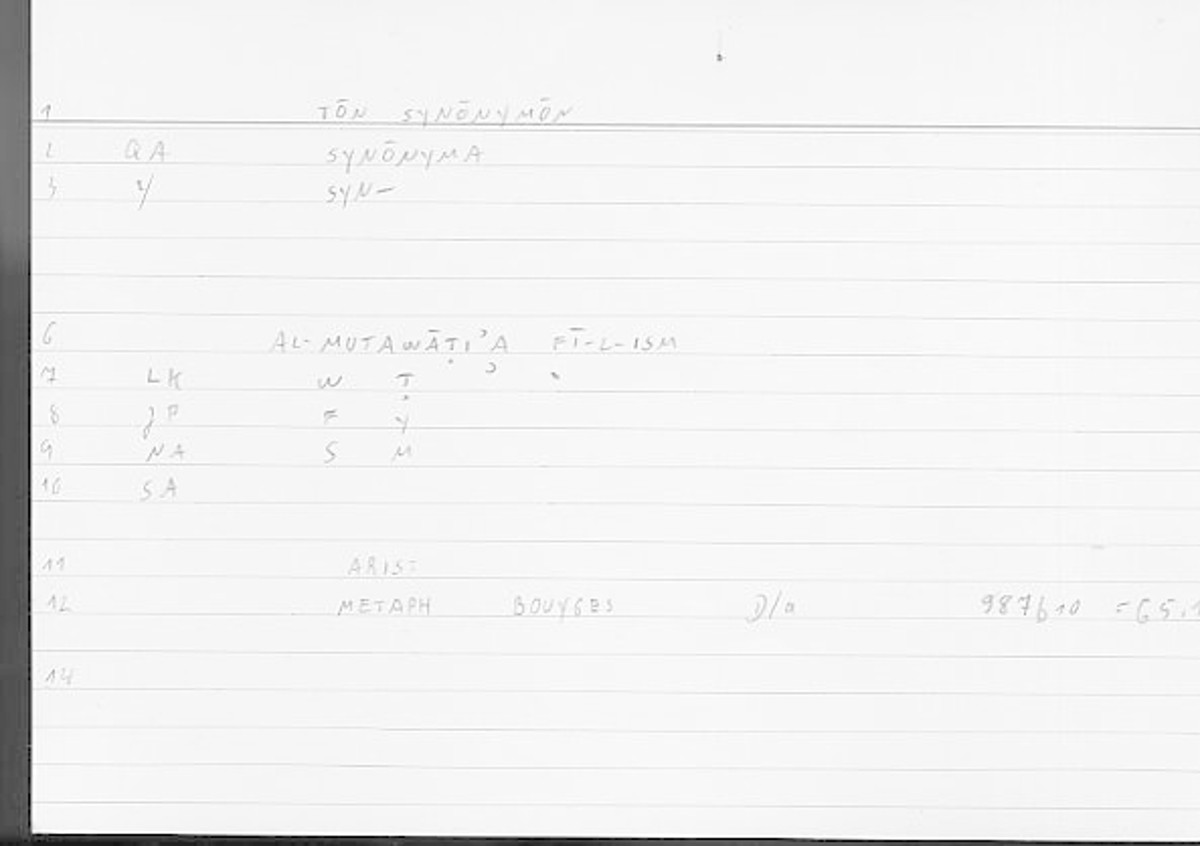 1 TŌN SYNŌNYMŌN
2 QA SYNŌNYMA
3 SYN-
6 AL-MUTAWĀṬIʾA FĪ-L-ISM
7 LK W Ṭ
8 JP F Y
9 NA S M
10 SA
11 ARIST
12 METAPH BOUYGES D/a 987b10 =65.1
14